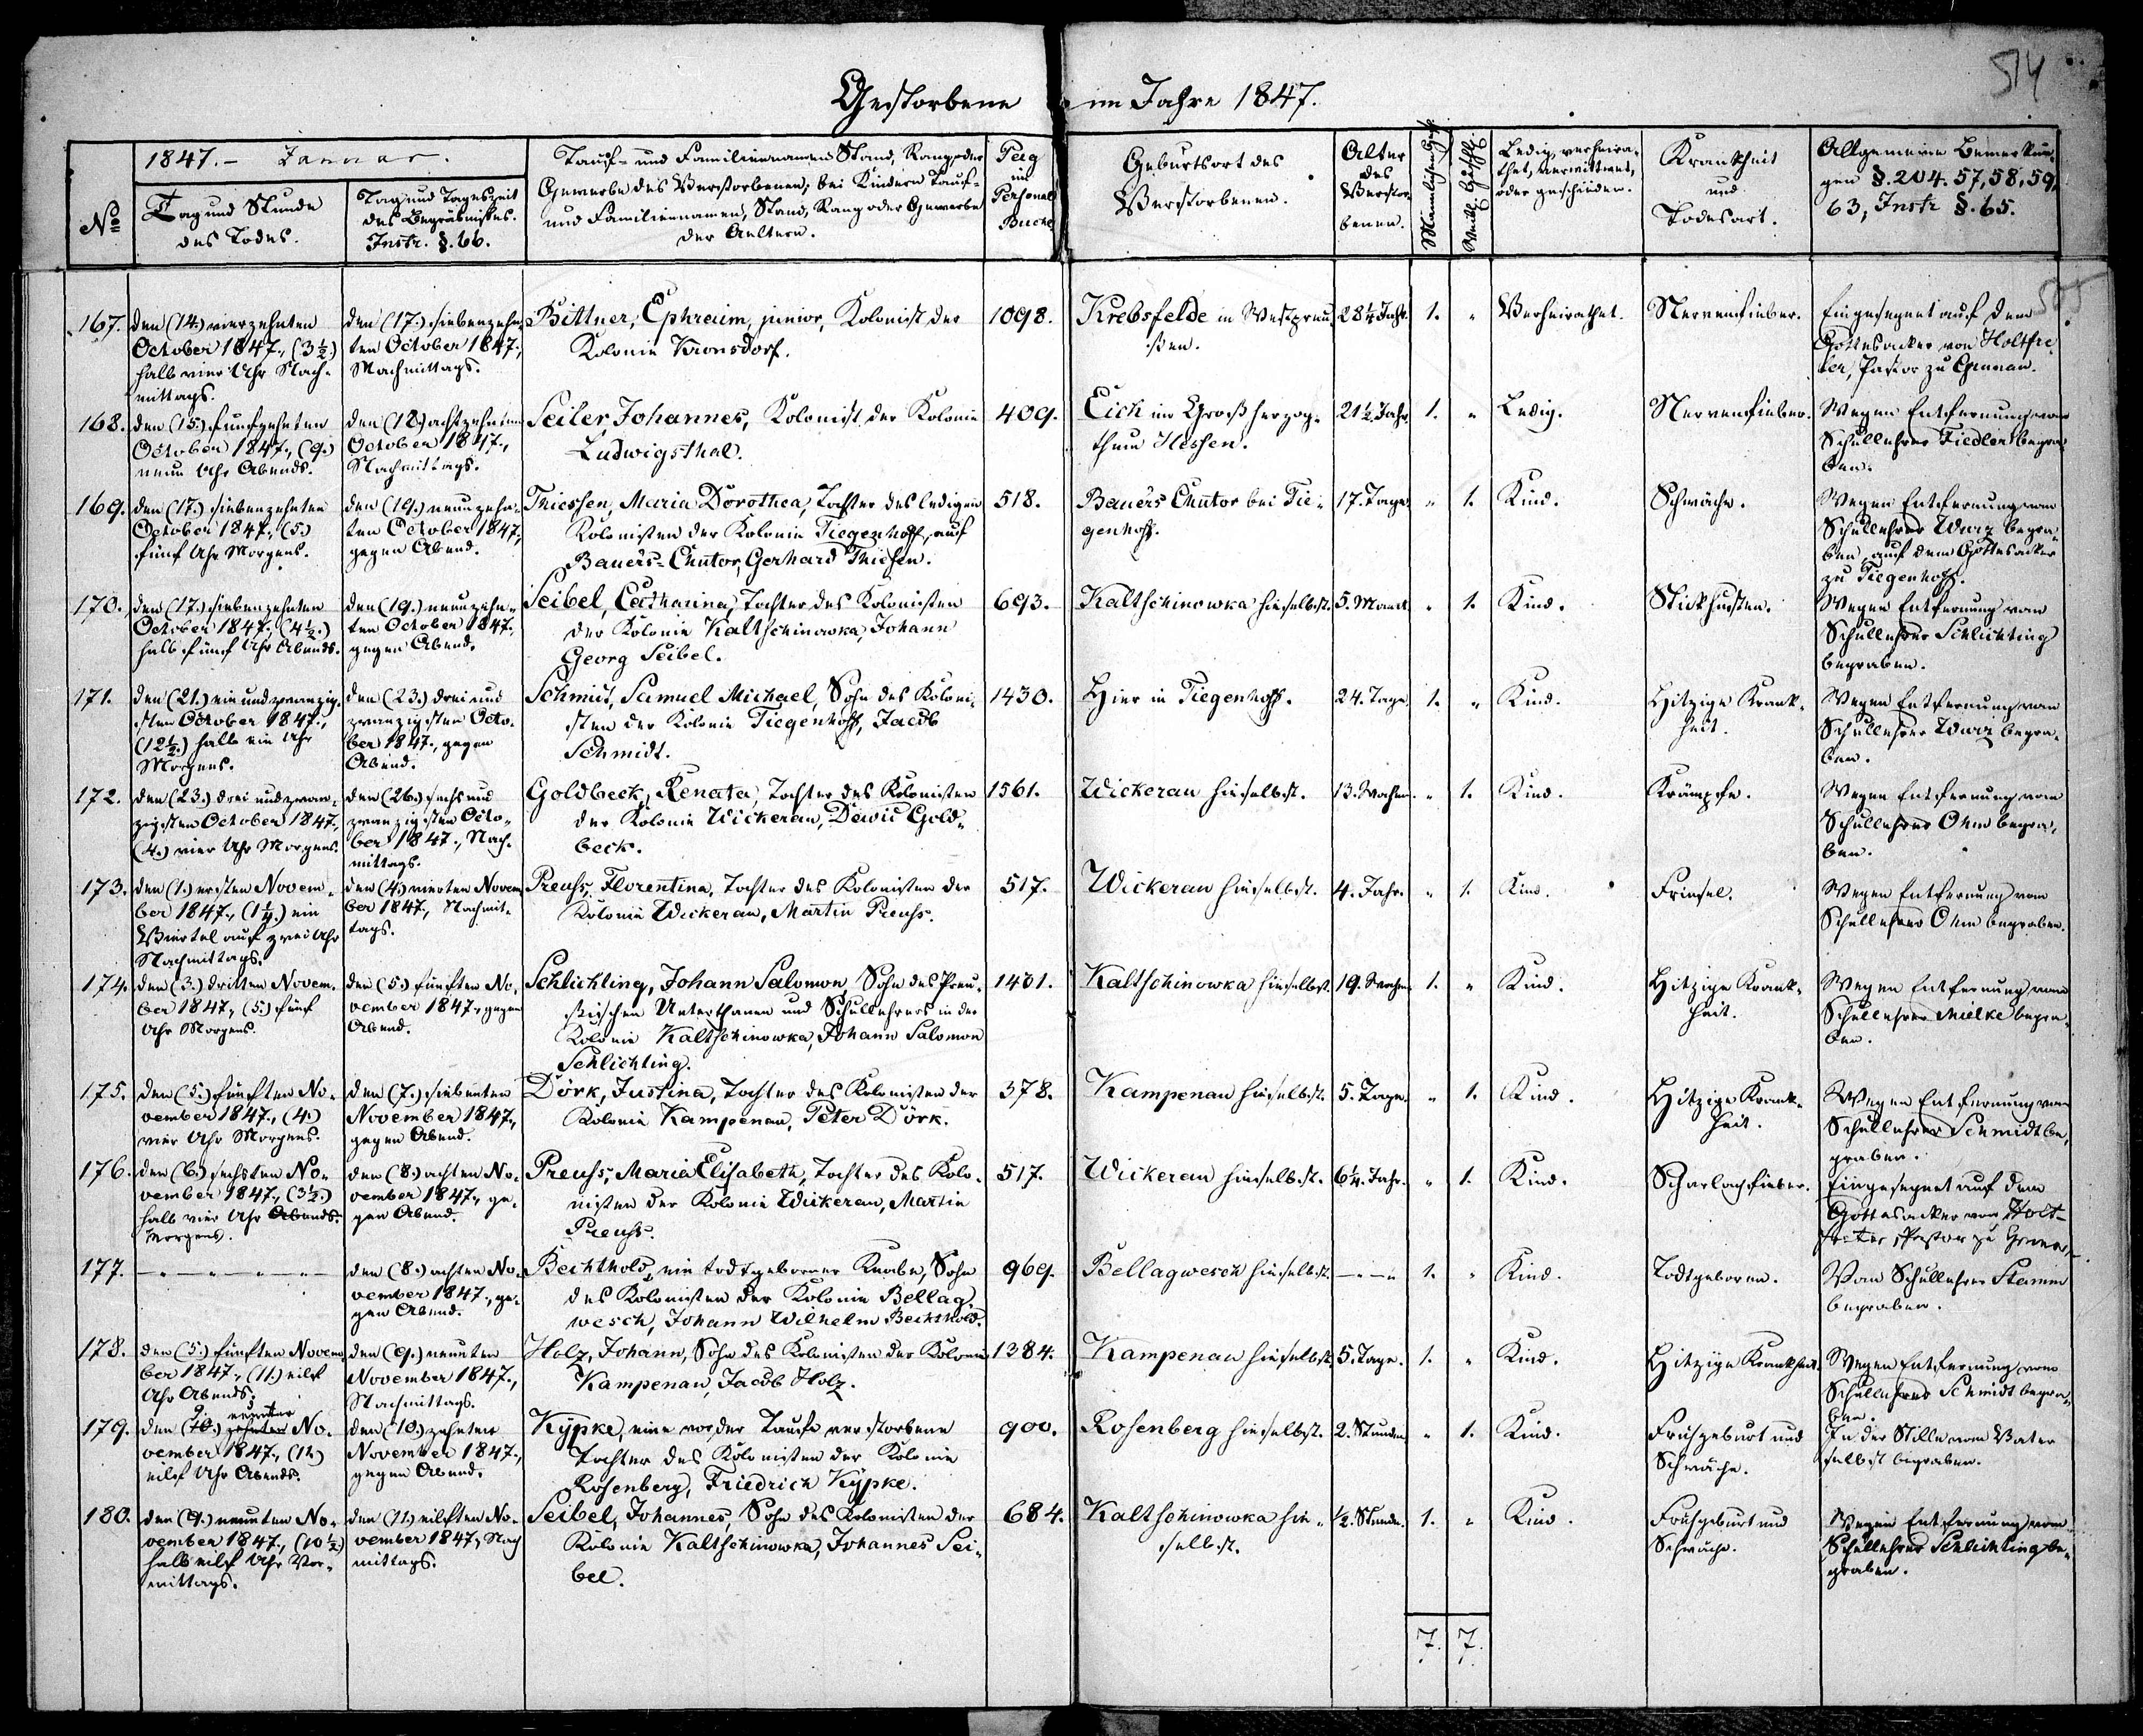 514
Gestorbene im Jahre 1847.
1847.- Januar.
№
Tag und Stunde
des Todes.
Tag und Tageszeit
des Begräbnisses.
Instr. §. 66.
Tauf- und Familiennamen Stand, Rang oder
Gewerbe des Verstorbenen, bei Kindern Tauf-
und Familiennamen, Stand, Rang oder Gewerbe
der Aeltern.
Pag
im
Personal
Buche
Geburtsort des
Verstorbenen.
Alter
des
Verstor-
benen.
Männlichen Gesch.
Weibl. Geschl.
Ledig, verheira-
thet, verwittwet,
oder geschieden.
Krankheit
und
Todesart.
Allgemeine Bemerkun-
gen §. 204. 57, 58, 59,
63, Instr §. 65.
167.
den (14.) vierzehnten
October 1847., (3½.)
halb vier Uhr Nach-
mittags.
den (17.) siebenzehn-
ten October 1847.,
Nachmittags.
Bittner, Ephraim, junior, Kolonist der
Kolonie Kronsdorf.
1098.
Krebsfelde in Westpreu-
ßen.
28¼ Jahr.
1.
"
Verheirathet.
Nervenfieber.
Eingesegnet auf dem
Gottesacker von Holtfre-
ter, Pastor zu Grunau.
168.
den (15.) funfzehnten
October 1847., (9.)
neun Uhr Abends.
den (18.) achtzehnten
October 1847.,
Nachmittags.
Seiler Johannes, Kolonist der Kolonie
Ludwigsthal.
409.
Eich im Großherzog-
thum Hessen.
21½ Jahr.
1.
"
Ledig.
Nervenfieber.
Wegen Entfernung vom
Schullehrer Fiedler begra-
ben.
169.
den (17.) siebenzehnten
October 1847., (5.)
fünf Uhr Morgens.
den (19.) neunzehn-
ten October 1847.,
gegen Abend.
Thiessen, Maria Dorothea, Tochter des ledigen
Kolonisten der Kolonie Tiegenhoff, auf
Bauers-Chutor, Gerhard Thiesen.
518.
Bauers Chutor bei Tie-
genhoff.
17. Tage.
"
1.
Kind.
Schwäche.
Wegen Entfernung vom
Schullehrer Wwiz begra-
ben, auf dem Gottesacker
zu Tiegenhoff.
170.
den (17.) siebenzehnten
October 1847., (4½.)
halb fünf Uhr Abends.
den (19.) neunzehn-
ten October 1847.,
gegen Abend.
Seibel, Catharina, Tochter des Kolonisten
der Kolonie Kaltschinowka, Johann
Georg Seibel.
693.
Kaltschinowka hieselbst.
5. Monat.
"
1.
Kind.
Stickhusten.
Wegen Entfernung vom
Schullehrer Schlichting
begraben.
171.
den (21.) ein und zwanzig-
sten October 1847.,
(12½.) halb ein Uhr
Morgens.
den (23.) drei und
zwanzigsten Octo-
ber 1847., gegen
Abend.
Schmidt, Samuel Michael, Sohn des Koloni-
sten der Kolonie Tiegenhoff, Jacob
Schmidt.
1430.
Hier in Tiegenhoff.
24. Tage.
1.
"
Kind.
Hitzige Krank-
heit.
Wegen Entfernung vom
Schullehrer Wwiz begra-
ben.
172.
den (23.) drei und zwan-
zigsten October 1847.,
(4.) vier Uhr Morgens.
den (26.) sechs und
zwanzigsten Octo-
ber 1847., Nach-
mittags.
Goldbeck, Renata, Tochter des Kolonisten
der Kolonie Wickerau, Dawid Gold-
beck.
1561.
Wickerau hieselbst.
13. Wochen.
"
1.
Kind.
Krämpfe.
Wegen Entfernung vom
Schullehrer Ohm begra-
ben.
173.
den (1.) ersten Novem-
ber 1847., (1¼.) ein
Viertel auf zwei Uhr
Nachmittags.
den (4.) vierten Novem-
ber 1847., Nachmit-
tags.
Preuss, Florentina, Tochter des Kolonisten der
Kolonie Wickerau, Martin Preuss.
517.
Wickerau hieselbst.
4. Jahr.
"
1.
Kind.
Friesel.
Wegen Entfernung vom
Schullehrer Ohm begraben.
174.
den (3.) dritten Novem-
ber 1847, (5.) fünf
Uhr Morgens.
den (5.) fünften No-
vember 1847., gegen
Abend.
Schlichting, Johann Salomon, Sohn des Preu-
ßischen Unterthanen und Schullehrers in der
Kolonie Kaltschinowka, Johann Salomon
Schlichting.
1431.
Kaltschinowka hieselbst.
19. Wochen
1.
"
Kind.
Hitzige Krank-
heit.
Wegen Entfernung vom
Schullehrer Mielke begra-
ben.
175.
den (5.) fünften No-
vember 1847., (4.)
vier Uhr Morgens.
den (7.) siebenten
November 1847.,
gegen Abend.
Dörk, Justina, Tochter des Kolonisten der
Kolonie Kampenau, Peter Dörk.
378.
Kampenau hieselbst.
5. Tage.
"
1.
Kind.
Hitzige Krank-
heit.
Wegen Entfernung vom
Schullehrer Schmidt be-
graben.
176.
den (6.) sechsten No-
vember 1847., (3½.)
halb vier Uhr Abends.
Morgens.
den (8.) achten No-
vember 1847., ge-
gen Abend.
Preuss, Maria Elisabeth, Tochter des Kolo-
nisten der Kolonie Wickerau, Martin
Preuss.
517.
Wickerau hieselbst.
6¼. Jahr.
"
1.
Kind.
Scharlachfieber.
Eingesegnet auf dem
Gottesacker von Holt-
freter, Pastor zu Grunau.
177.
— " — " — " — " —
den (8.) achten No-
vember 1847., ge-
gen Abend.
Bechthold, ein todtgeborner Knabe, Sohn
des Kolonisten der Kolonie Bellag-
wesch, Johann Wilhelm Bechthold.
969.
Bellagwesch hieselbst.
— " — "
1.
"
Kind.
Todtgeboren.
Vom Schullehrer Stamm
begraben.
178.
den (5.) fünften Novem-
ber 1847., (11.) eilf
Uhr Abends.
den (9.) neunten
November 1847.,
Nachmittags.
Holz, Johann, Sohn des Kolonisten der Kolonie
Kampenau, Jacob Holz.
1384.
Kampenau hieselbst.
5. Tage.
1.
"
Kind.
Hitzige Krankheit.
Wegen Entfernung vom
Schullehrer Schmidt begra-
ben.
179.
9. neunten
den (10.) zehnten No-
vember 1847., (11.)
eilf Uhr Abends.
den (10.) zehnten
November 1847.,
gegen Abend.
Kypke, eine vor der Taufe verstorbene
Tochter des Kolonisten der Kolonie
Rosenberg, Friedrich Kypke.
900.
Rosenberg hieselbst.
2. Stunden
"
1.
Kind.
Frühgeburt und
Schwäche.
In der Stille vom Vater
selbst begraben.
180.
den (9.) neunten No-
vember 1847., (10½)
halb eilf Uhr Vor-
mittags.
den (11.) eilften No-
vember 1847, Nach
mittags.
Seibel, Johannes, Sohn des Kolonisten der
Kolonie Kaltschinowka, Johannes Sei-
bel.
684.
Kaltschinowka hie-
selbst.
½. Stunde.
1.
"
Kind.
Frühgeburt und
Schwäche.
Wegen Entfernung vom
Schullehrer Schlichting be-
graben.
7.
7.